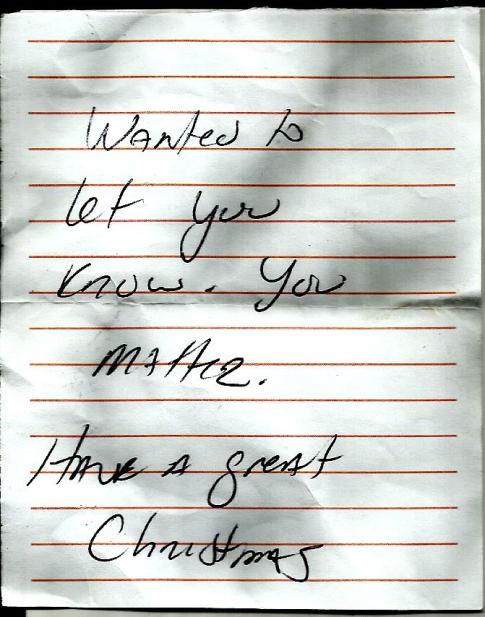 Wanted to
let you
know. You
matter.
Have a great
Christmas